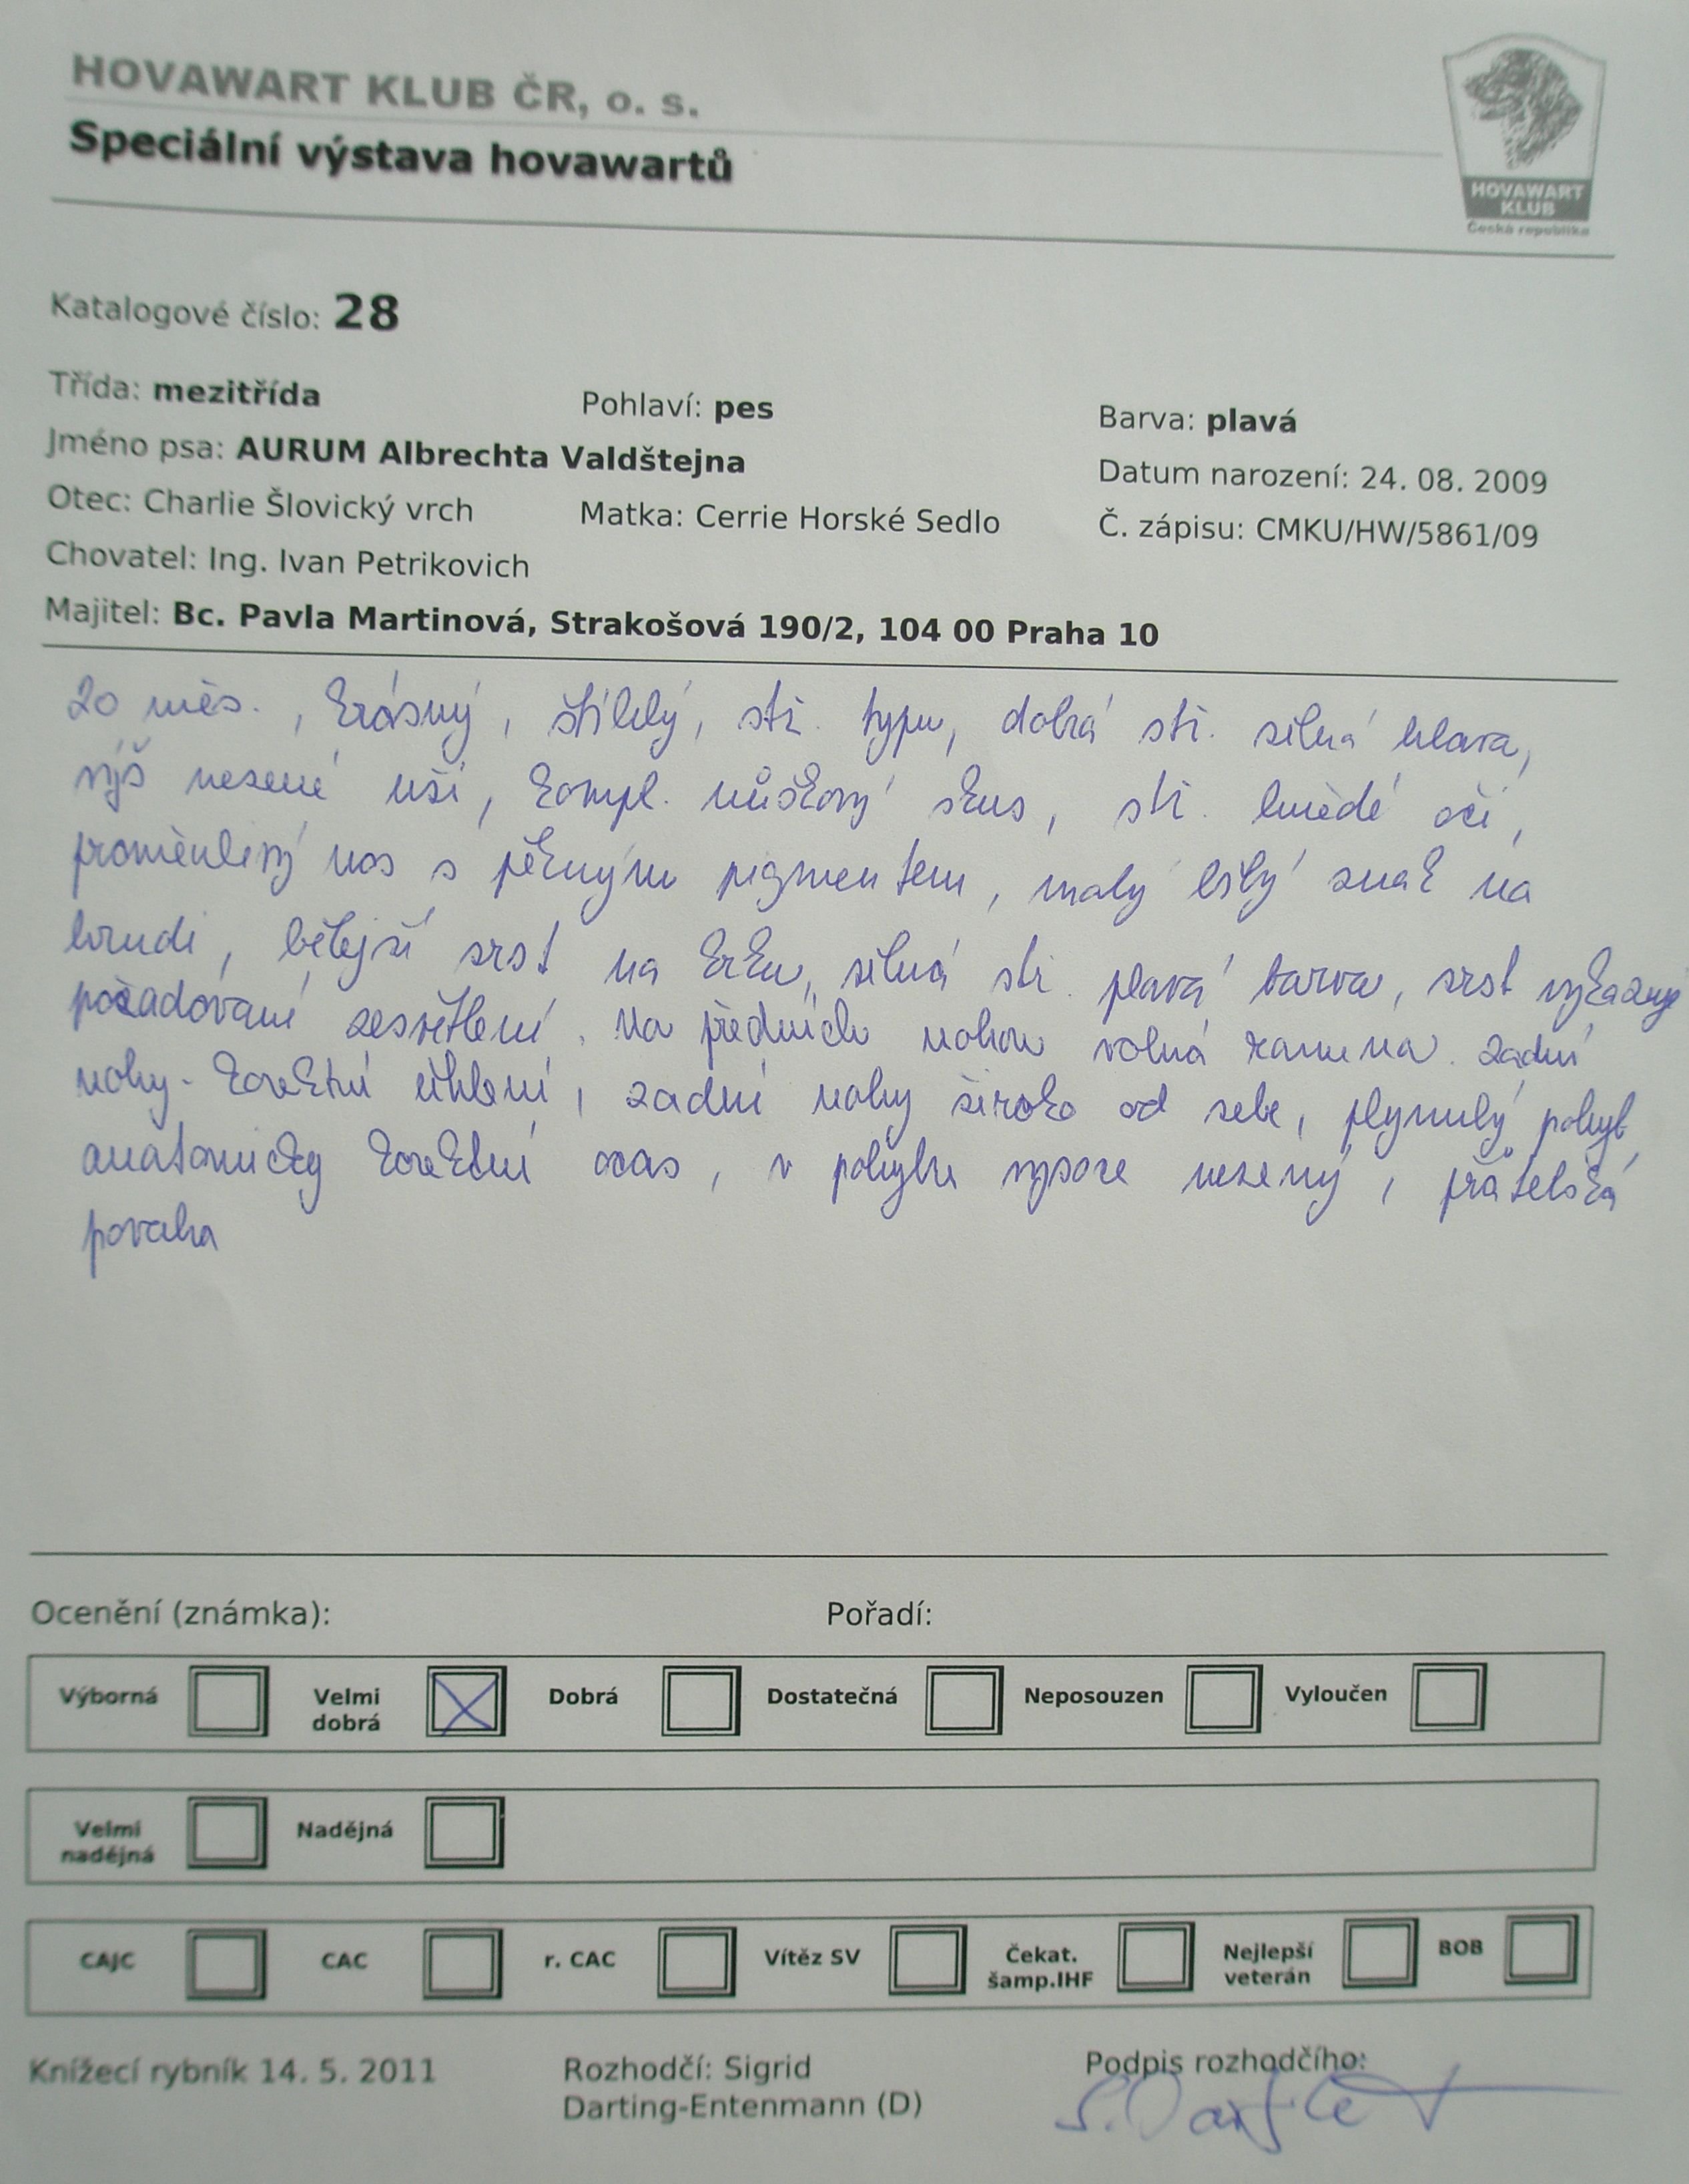 HOVAWART KLUB ČR, o. s.
Speciální výstava hovawartů
HOVAWART
KLUB
Česká republika
Katalogové číslo: 28
Třída: mezitřída Pohlaví: pes Barva: plavá
Jméno psa: AURUM Albrechta Valdštejna Datum narození: 24. 08. 2009
Otec: Charlie Šlovický vrch Matka: Cerrie Horské Sedlo Č. zápisu: CMKU/HW/5861/09
Chovatel: Ing. Ivan Petrikovich
Majitel: Bc. Pavla Martinová, Strakošová 190/2, 104 00 Praha 10
20 měs., krásný, štíhlý, stř. typu, dobrá stř. silná hlava,
výš nesené uši, kompl. nůžkový skus, stř. hnědé oči,
proměnlivý nos s pěkným pigmentem, malý bílý znak na
hrudi, bělejší srst na krku, silná stř. plavá barva, srst vykazuje
požadované zesvětlení. Na předních nohou volná ramena. zadní
nohy - korektní úhlení, zadní nohy široko od sebe, plynulý pohyb,
anatomicky korektní ocas, v pohybu vysoce nesený, přátelská
povaha
Ocenění (známka): Pořadí:
Výborná Velmi dobrá Dobrá Dostatečná Neposouzen Vyloučen
Velmi nadějná Nadějná
CAJC CAC r. CAC Vítěz SV Čekat. šamp.IHF Nejlepší veterán BOB
Knížecí rybník 14. 5. 2011 Rozhodčí: Sigrid Podpis rozhodčího:
Darting-Entenmann (D)